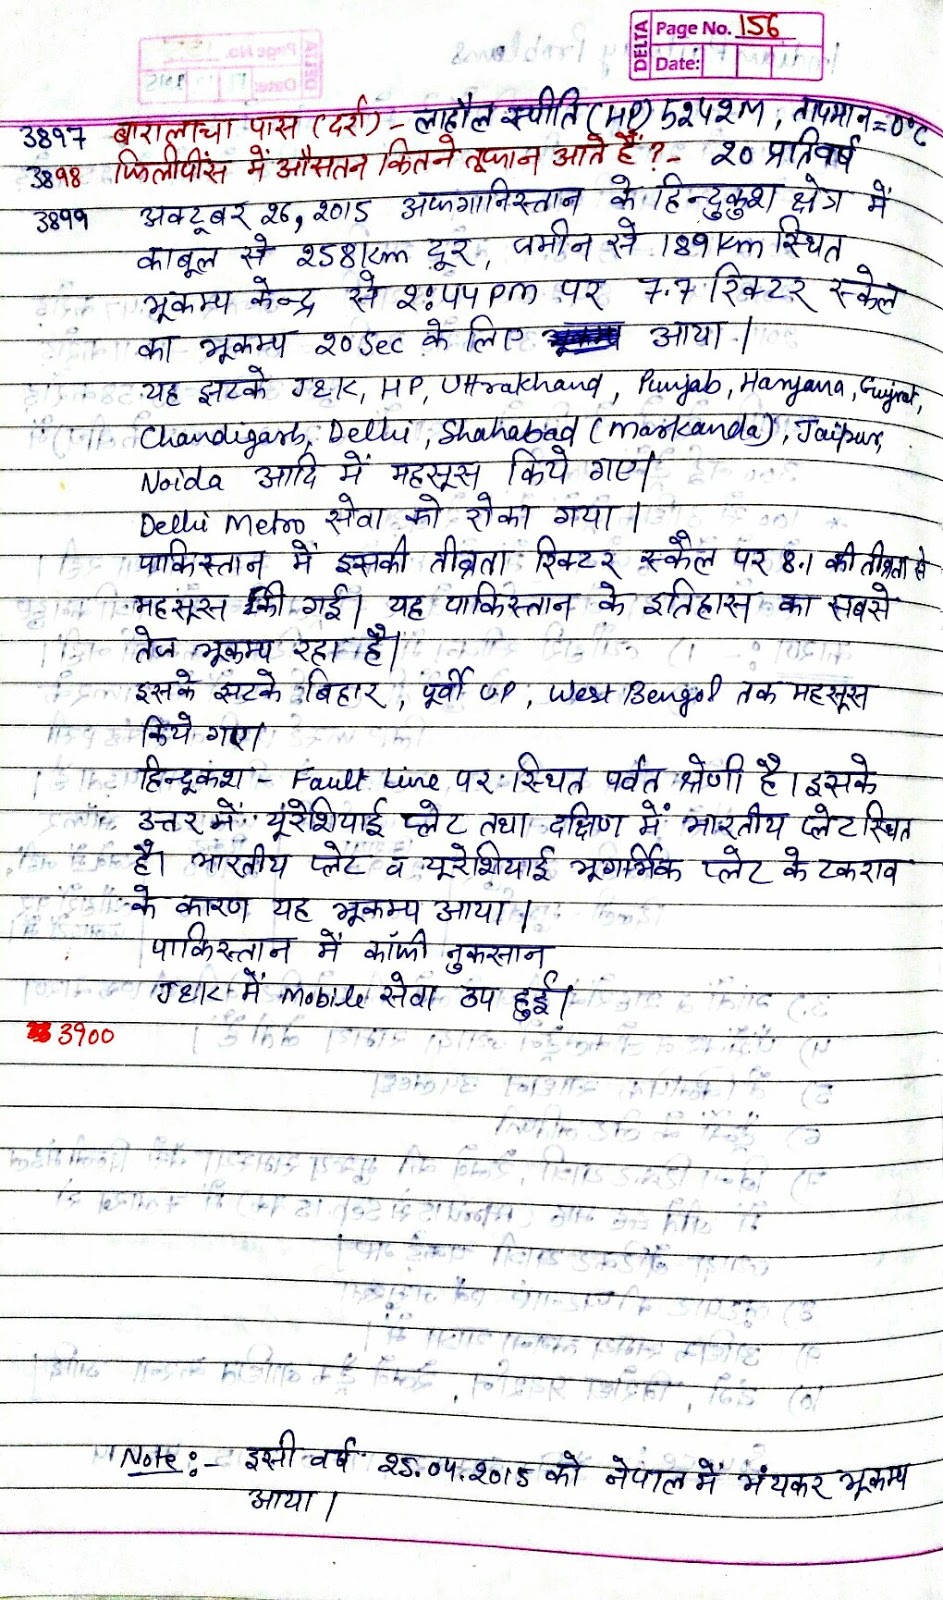 DELTA Page No. 156
Date:
3897 बारालाचा पास (दर्रा) - लाहौल स्पीति (HP) 5242M, तापमान = 0°C
3898 फिलीपींस में औसतन कितने तूफान आते हैं? - 20 प्रतिवर्ष
3899 अक्टूबर 26, 2015 अफगानिस्तान के हिन्दुकुश क्षेत्र में
काबूल से 258 Km दूर, जमीन से 189 Km स्थित
भूकम्प केन्द्र से 2:44 PM पर 7.7 रिक्टर स्केल
का भूकम्प 20 Sec के लिए आया।
यह झटके J&K, HP, Uttrakhand, Punjab, Haryana, Gujrat,
Chandigarh, Delhi, Shahabad (Markanda), Jaipur,
Noida आदि में महसूस किये गए।
Delhi Metro सेवा को रोका गया।
पाकिस्तान में इसकी तीव्रता रिक्टर स्कैल पर 8.1 की तीव्रता से
महसूस की गई। यह पाकिस्तान के इतिहास का सबसे
तेज भूकम्प रहा है।
इसके झटके बिहार, पूर्वी UP, West Bengol तक महसूस
किये गए।
हिन्दूकश - Fault Line पर स्थित पर्वत श्रेणी है। इसके
उत्तर में यूरेशियाई प्लेट तथा दक्षिण में भारतीय प्लेट स्थित
है। भारतीय प्लेट व यूरेशियाई भूगर्भिक प्लेट के टकराव
के कारण यह भूकम्प आया।
पाकिस्तान में कॉफी नुकसान
J&K में Mobile सेवा ठप हुई।
3900
Note :- इसी वर्ष 25.04.2015 को नेपाल में भंयकर भूकम्प
आया।